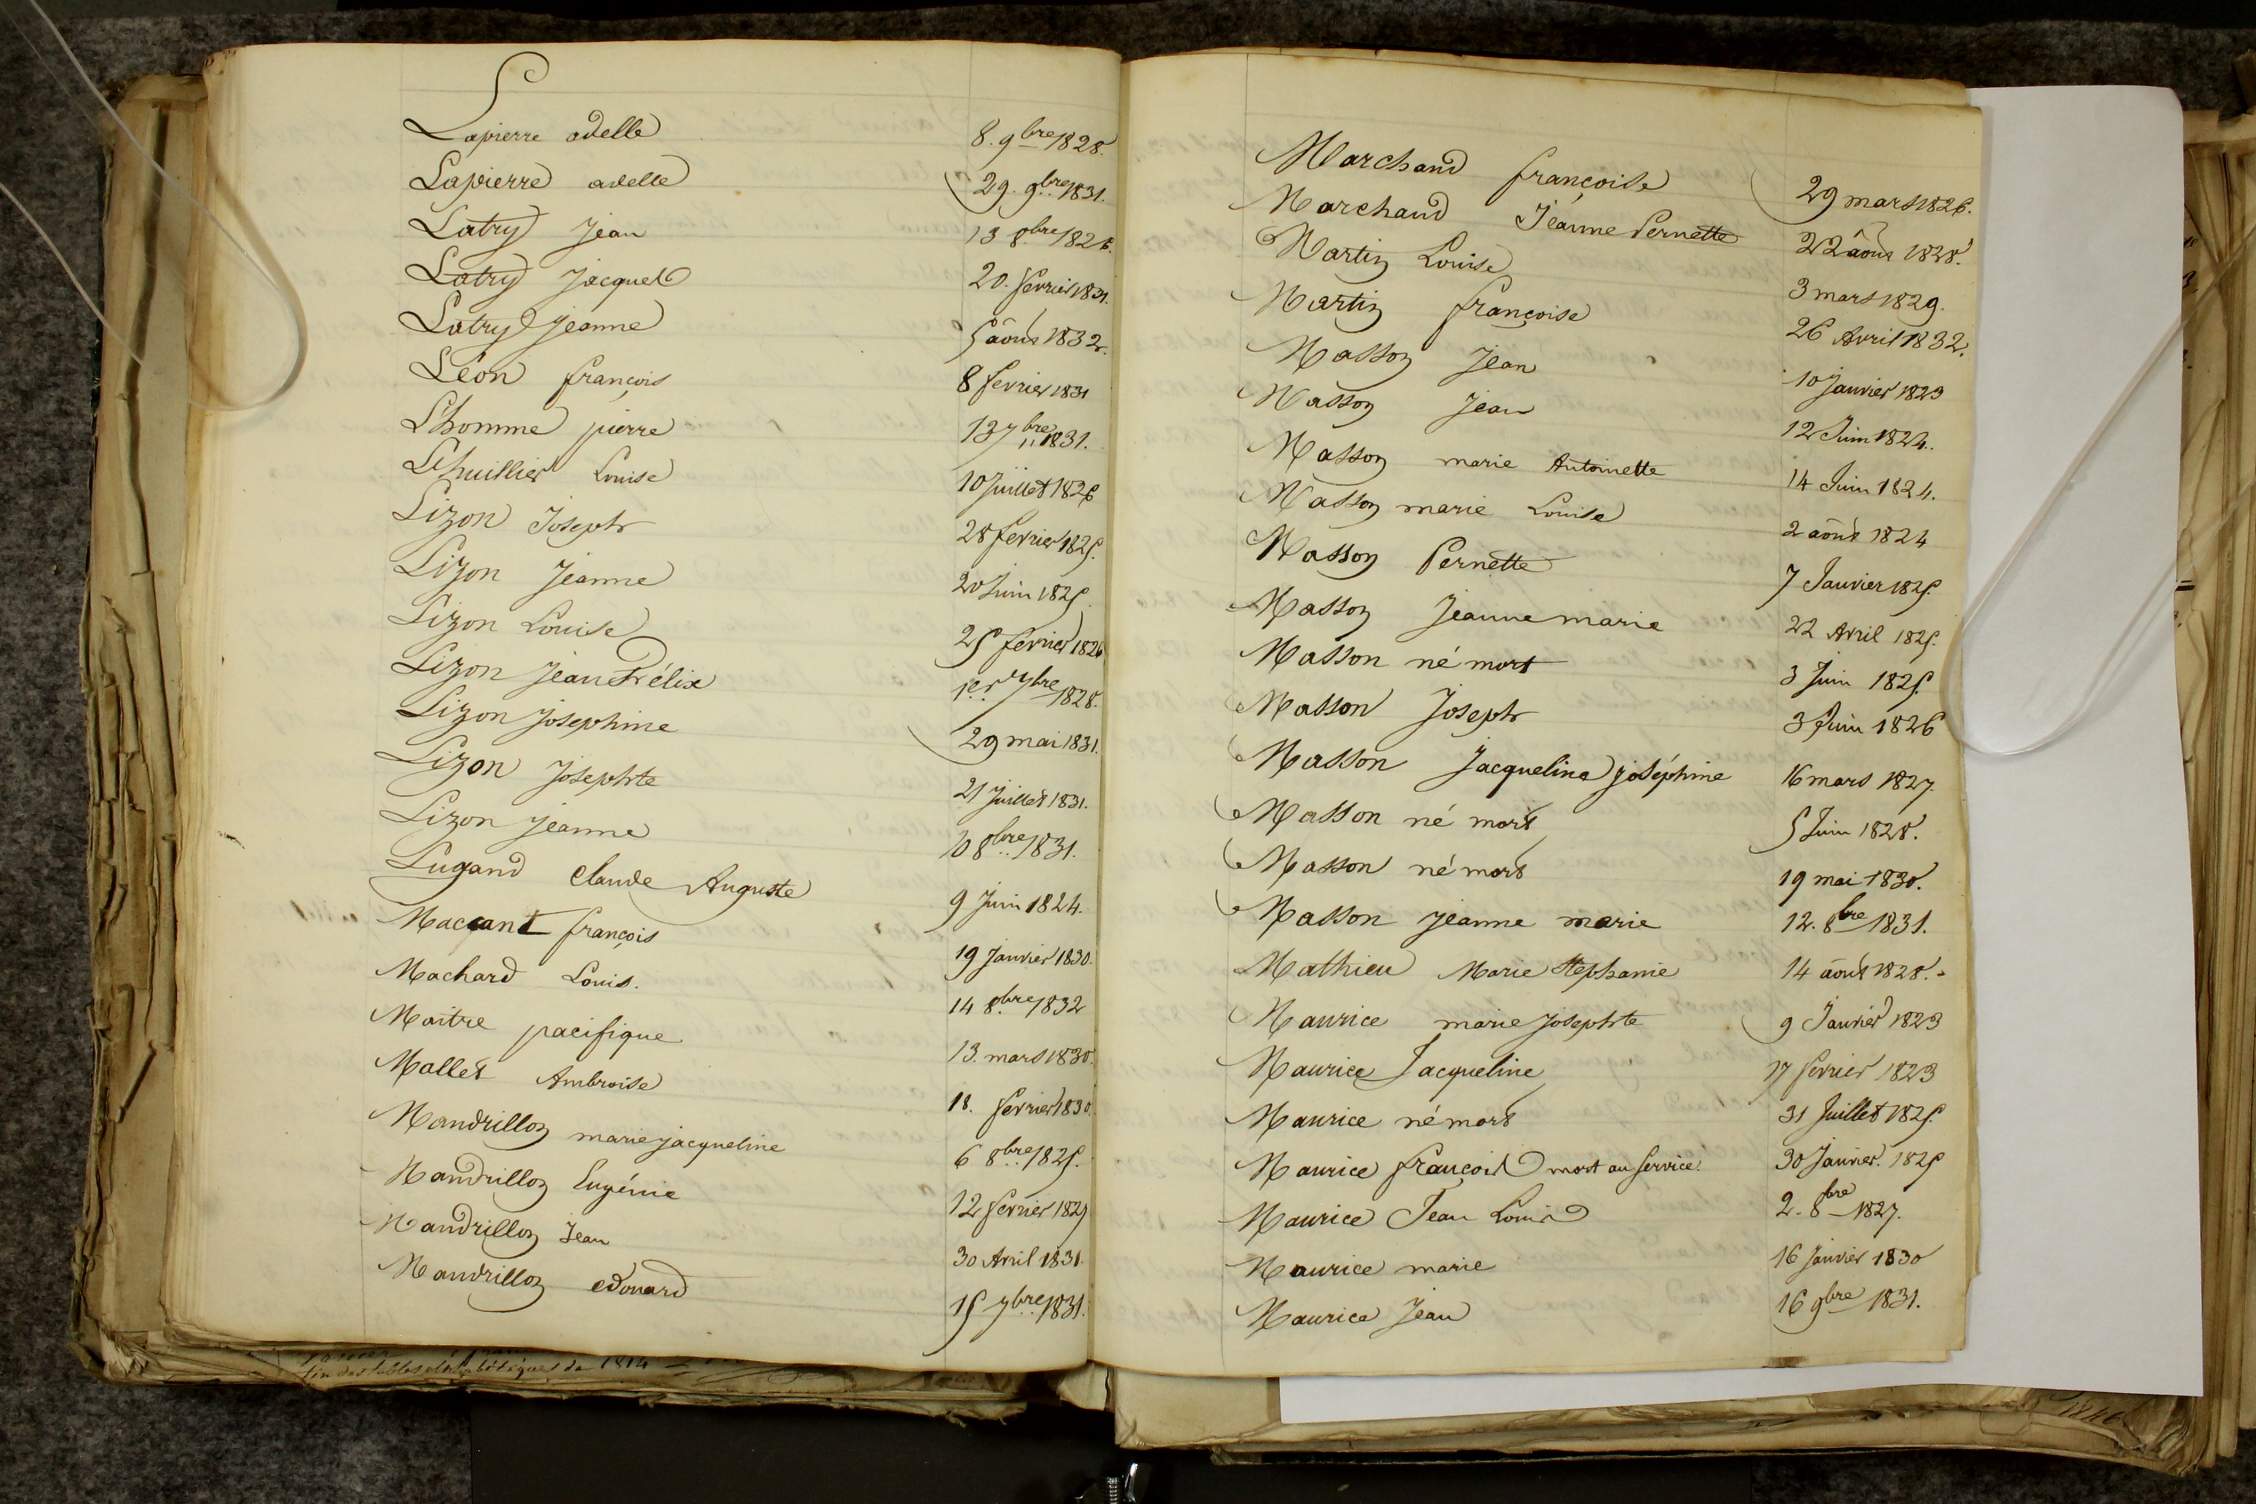 Lapierre adelle 8. 9bre 1828.
Lapierre adelle 29. 9bre 1831.
Latry Jean 13 8bre 1826.
Latry Jacques 20. fevrier 1831.
Latry Jeanne 5 août 1832.
Léon françois 8 fevrier 1831
Lhomme pierre 13 7bre 1831.
Lhuillier Louise 10 Juillet 1826
Lizon Joseph 28 fevrier 1825.
Lizon Jeanne 20 Juin 1825.
Lizon Louise 25 fevrier 1826
Lizon Jean Félix 1er 7bre 1828.
Lizon Josephine 29 mai 1831.
Lizon Josephte 21 Juillet 1831.
Lizon Jeanne 10 8bre 1831.
Lugand Claude Auguste 9 Juin 1824.
Macçant françois 19 Janvier 1830.
Machard Louis. 14 8bre 1832
Maitre pacifique 13. mars 1830.
Mallet Ambroise 18. fevrier 1830.
Mandrillon marie jacqueline 6 8bre 1825.
Mandrillon Eugénie 12 fevrier 1829
Mandrillon Jean 30 Avril 1831.
Mandrillon edouard 15 7bre 1831.
fin des tables alphabétiques de 1814
Marchand françoise 29 mars 1826.
Marchand Jeanne Pernette 22 août 1828.
Martin Louise 3 mars 1829.
Martin françoise 26 Avril 1832.
Masson Jean 10 Janvier 1823
Masson Jean 12 Juin 1824.
Masson marie Antoinette 14 Juin 1824.
Masson marie Louise 2 août 1824
Masson Pernette 7 Janvier 1825.
Masson Jeanne marie 22 Avril 1825.
Masson né mort 3 Juin 1825.
Masson Joseph 3 Juin 1826
Masson Jacqueline joséphine 16 mars 1827.
Masson né mort 5 Juin 1828.
Masson né mort 19 mai 1830.
Masson jeanne marie 12. 8bre 1831.
Mathieu Marie Stephanie 14 août 1828.
Maurice marie Josephte 9 Janvier 1823
Maurice Jacqueline 17 fevrier 1823
Maurice né mort 31 Juillet 1825.
Maurice françois mort au service. 30 Janvier. 1825
Maurice Jean Louis 2. 8bre 1827.
Maurice marie 16 Janvier 1830
Maurice Jean 16 9bre 1831.